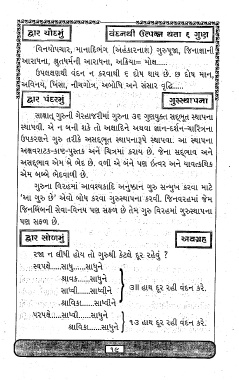 દ્વાર ચૌદમું
વંદનથી ઉત્પન્ન થતા ૬ ગુણ
વિનયોપચાર, માનાદિભંગ (અહંકારનાશ) ગુરુપૂજા, જિનાજ્ઞાની
આરાધના, શ્રુતધર્મની આરાધના, અક્રિયા= મોક્ષ.....
ઉપલક્ષણથી વંદન ન કરવાથી ૬ દોષ થાય છે. છ દોષ માન,
અવિનય, ખિંસા, નીચગોત્ર, અબોધિ અને સંસાર વૃદ્ધિ.....
દ્વાર પંદરમું
ગુરુસ્થાપના
સાક્ષાત્ ગુરુની ગેરહાજરીમાં ગુરુના ૩૬ ગુણયુક્ત સદ્ભૂત સ્થાપના
સ્થાપવી. એ ન બની શકે તો અક્ષાદિને અથવા જ્ઞાન-દર્શન-ચારિત્રના
ઉપકરણને ગુરુ તરીકે અસદ્ભૂત સ્થાપનારૂપે સ્થાપવા. આ સ્થાપના
અક્ષવરાટક-કાષ્ટ-પુસ્તક અને ચિત્રમાં કરાય છે. જેના સદ્ભાવ અને
અસદ્ભાવ એમ બે ભેદ છે. વળી એ બંને પણ ઈત્વર અને યાવત્કથિક
એમ બબ્બે ભેદવાળી છે.
ગુરુના વિરહમાં આવશ્યકાદિ અનુષ્ઠાન ગુરુ સન્મુખ કરવા માટે
'આ ગુરુ છે' એવો બોધ કરવા ગુરુસ્થાપના કરવી. જિનવરહમાં જેમ
જિનબિંબની સેવા-વિનય પણ સફળ છે તેમ ગુરુ વિરહમાં ગુરુસ્થાપના
પણ સફળ છે.
દ્વાર સોળમું
અવગ્રહ
રજા ન લીધી હોય તો ગુરુથી કેટલે દૂર રહેવું ?
સ્વપક્ષે.....સાધુ.....સાધુને
શ્રાવક.....સાધુને
સાધ્વી.....સાધ્વીને
શ્રાવિકા.....સાધ્વીને
૩ાા હાથ દૂર રહી વંદન કરે.
પરપક્ષે.....સાધ્વી.....સાધુને
શ્રાવિકા.....સાધુને
૧૩ હાથ દૂર રહી વંદન કરે.